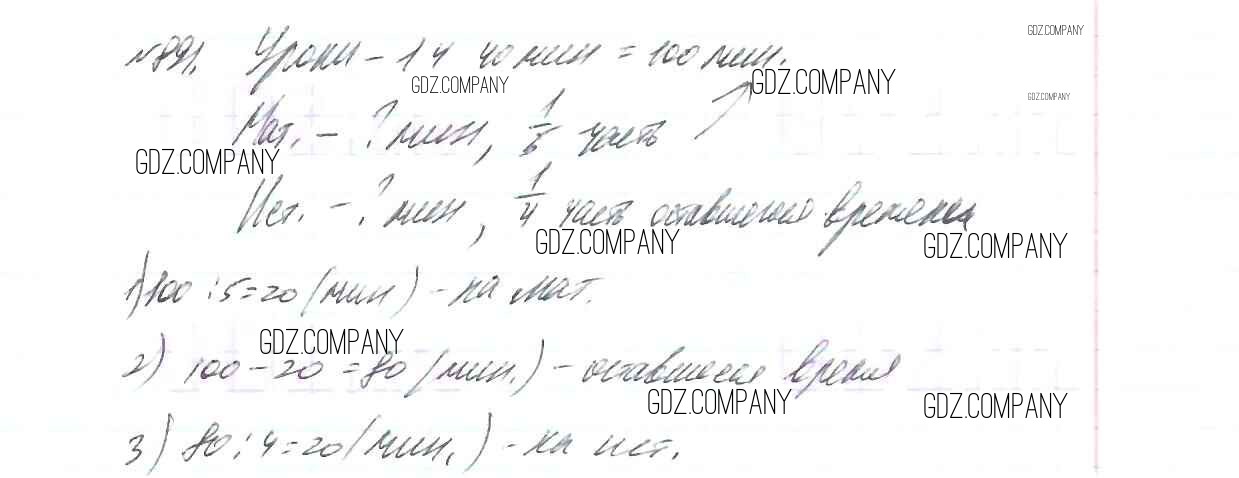 GDZ.COMPANY
№891. Уроки – 1 ч 40 мин = 100 мин.
GDZ.COMPANY GDZ.COMPANY GDZ.COMPANY
Мат. – ? мин, 1/5 часть
GDZ.COMPANY
Ист. – ? мин, 1/4 часть оставшегося времени
GDZ.COMPANY GDZ.COMPANY
1) 100 : 5 = 20 (мин) – на мат.
GDZ.COMPANY
2) 100 – 20 = 80 (мин.) – оставшееся время
GDZ.COMPANY GDZ.COMPANY
3) 80 : 4 = 20 (мин.) – на ист.